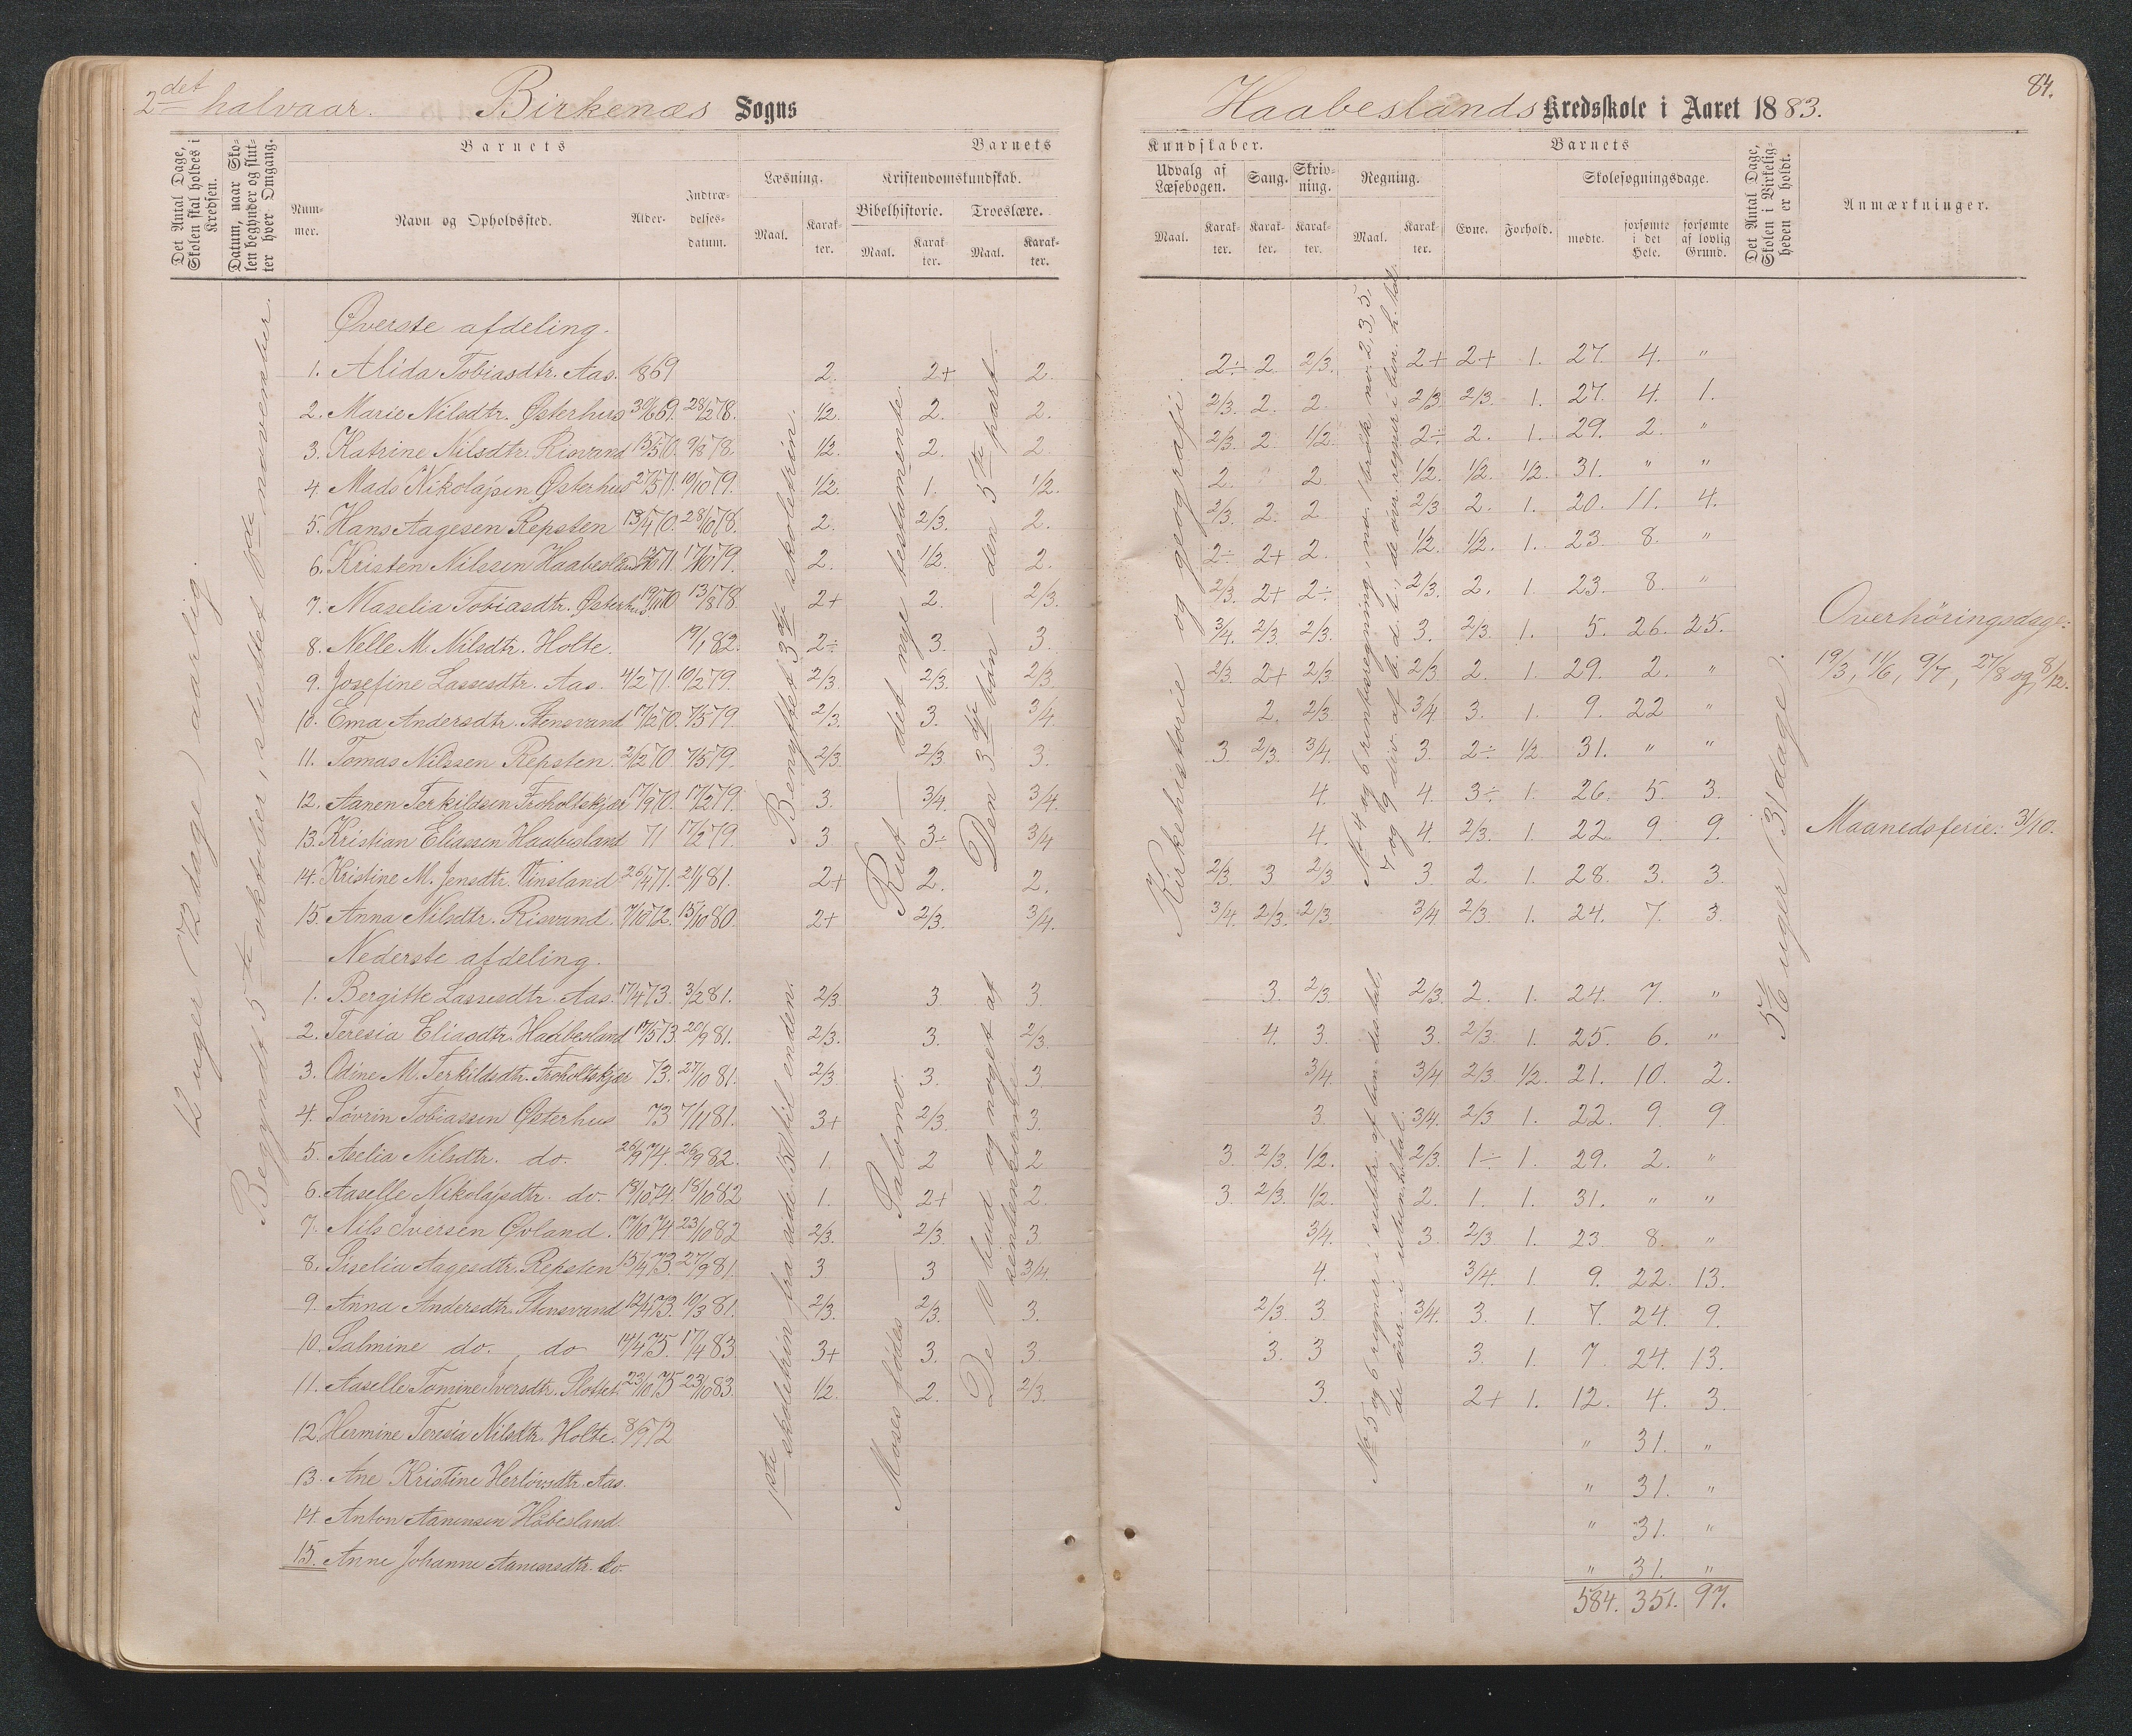 2det halvaar. Birkenæs Sogns
Det Antal Dage, Skolen skal holdes i Kredsen.
Datum, naar Skolen begynder og slutter hver Omgang.
Barnets
Nummer.
Navn og Opholdssted.
Alder.
Indtrædelsesdatum.
Barnets
Læsning.
Kristendomskundskab.
Bibelhistorie.
Troeslære.
Maal. Karakter. Maal. Karakter. Maal. Karakter.
12 uger (72 dage) aarlig.
Begyndt 5te oktober, sluttet november.
Benyttet 3dje skoletrin.
Rut — det nye testamente.
Den 3dje bön — den 5te part.
Øverste afdeling.
1. Alida Tobiasdtr. Aas. 1869 2. 2+ 2.
2. Marie Nilsdtr. Østerhus 30/6 69. 28/2 78. 1/2. 2. 2.
3. Katrine Nilsdtr. Risvand 15/5 70. 9/8 78. 1/2. 2. 2.
4. Mads Nikolajsen Østerhus 27/5 71. 10/10 79. 1/2. 1. 1/2.
5. Hans Aagesen Repsten 13/4 70. 28/10 78. 2. 2/3. 2.
6. Kristen Nilssen Haabesland 71. 17/10 79. 2. 1/2. 2.
7. Maselia Tobiasdtr. Østerhus 19/10 70 13/8 78. 2+ 2. 2/3.
8. Nelle M. Nilsdtr. Holte. 19/1 82. 2÷ 3. 3.
9. Josefine Lassesdtr. Aas. 4/2 71. 10/2 79. 2/3. 2/3. 2/3.
10. Ema Andersdtr. Stensvand 17/2 70. 7/5 79. 2/3. 3. 3/4.
11. Tomas Nilssen Repsten. 2/2 70. 7/5 79. 2/3. 2/3. 3.
12. Aanen Terkildsen Froholtskjær 17/9 70. 17/2 79. 3. 3/4. 3/4.
13. Kristian Eliassen Haabesland 71 17/2 79. 3 3÷ 3/4
14. Kristine M. Jensdtr. Vinsland 26/4 71. 21/1 81. 2+ 2. 2.
15. Anna Nilsdtr. Risvand. 7/10 72. 15/10 80. 2+ 2/3. 3/4.
Nederste afdeling.
1. Bergitte Lassesdtr. Aas. 17/4 73. 3/2 81. 2/3. 3. 3.
2. Teresia Eliasdtr. Haabesland 17/5 73 20/9 81. 2/3. 3. 2/3.
3. Odine M. Terkildsdtr. Froholtskjær 73. 27/10 81. 2/3. 3. 3.
4. Sövrin Tobiassen Østerhus 73 7/11 81. 3+ 2/3. 3.
5. Aselia Nilsdtr. do. 26/9 74. 26/9 82. 1. 2 2
6. Aaselle Nikolajsdtr. do. 18/10 74. 18/10 82 1. 2+ 2.
7. Nils Iversen Øvland. 17/10 74 23/10 82 2/3. 2/3. 3
8. Siselia Aagesdtr. Repsten 15/4 73. 27/9 81. 3 3 3/4.
9. Anna Andersdtr. Stensvand 12/4 73. 10/3 81. 2/3. 2/3. 3.
10. Salmine do. do 14/4 75. 17/4 83 3+ 3. 3.
11. Aaselle Tomine Iversdtr. Slottet. 23/10 75 23/10 83. 1/2. 2. 2/3.
12. Hermine Teresia Nilsdtr. Holte. 8/9 72
13. Ane Kristine Herlövsdtr. Aas.
14. Anton Aanensen Håbesland.
15. Anne Johanne Aanensdtr. do.
1ste skoletrin fra side 51 til enden.
Moses födes — Salomo.
De 10 bud og noget af sentenserne
Haabeslands Kredsskole i Aaret 1883.
84.
Kundskaber.
Udvalg af Læsebogen. Sang. Skrivning. Regning.
Maal. Karakter. Karakter. Karakter. Maal. Karakter.
Barnets
Evne. Forhold.
Skolesøgningsdage.
mødte. forsømte i det Hele. forsømte af lovlig Grund.
Det Antal Dage, Skolen i Virkeligheden er holdt.
Anmærkninger.
Kirkehistorie og geografi.
2÷ 2 2/3. 2+ 2+ 1. 27. 4. "
2/3. 2. 2. 2/3. 2/3. 1. 27. 4. 1.
2/3. 2. 1/2. 2÷ 2. 1. 29. 2. "
2. 2. 1/2. 1/2. 1/2. 31. " "
2/3. 2. 2 2/3 2. 1. 20. 11. 4.
2÷ 2+ 2. 1/2. 1/2. 1. 23. 8. "
2/3. 2+ 2÷ 2/3. 2. 1. 23. 8. "
3/4. 2/3. 2/3. 3. 2/3. 1. 5. 26. 25.
2/3. 2+ 2/3 2/3 2. 1. 29. 2. "
2. 2/3 3/4 3. 1. 9. 22 "
3 2/3. 3/4. 3. 2÷ 1/2 31. " "
4. 4. 3÷ 1. 26. 5. 3.
4. 4. 2/3. 1. 22. 9. 9.
2/3. 3 2/3 3. 2. 1. 28. 3. 3.
3/4. 2/3. 2/3. 3/4 2/3. 1. 24. 7. 3.
3. 2/3. 2/3. 2. 1. 24. 7. "
4. 3. 3. 2/3. 1. 25. 6. "
3/4. 3/4 2/3 1/2. 21. 10. 2.
3. 3/4. 2/3 1. 22. 9. 9.
3. 2/3. 1/2. 2/3. 1÷ 1. 29. 2. "
3. 2/3. 1/2. 2. 1. 1. 31. " "
3/4. 3. 2/3 1. 23. 8. "
4. 3/4. 1. 9. 22. 13.
2/3 3. 3/4. 3. 1. 7. 24. 9.
3. 3 3. 1. 7 24. 13.
3. 2+ 1. 12. 4. 3.
" 31. "
" 31. "
" 31. "
" 31. "
584. 351. 97.
5 1/6 uger (31 dage).
Overhöringsdage:
19/3, 11/6, 9/7, 27/8 og 8/12.
Maanedsferie: 3/10.